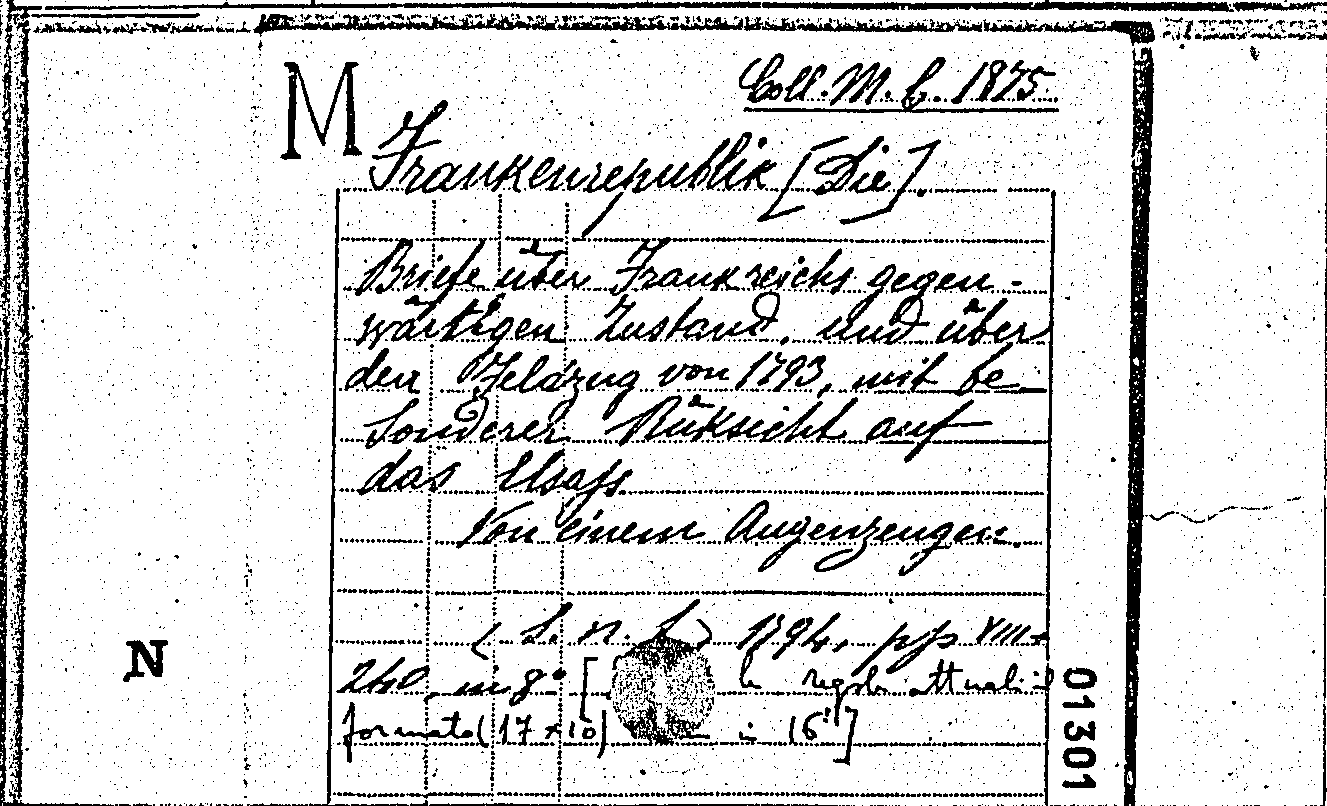 M
Coll. M. C. 1875.
Frankenrepublik [Die].
Briefe über Frankreichs gegen-
wärtigen Zustand, und über
den Feldzug von 1793, mit be-
sonderer Rüksicht auf
das Elsass
Von einem Augenzeugen.
(S. n. t.) 1794, pp VIII+
N
240, in 8° [ le regole attuali il
formato (17 x 10) in 16°]
01301